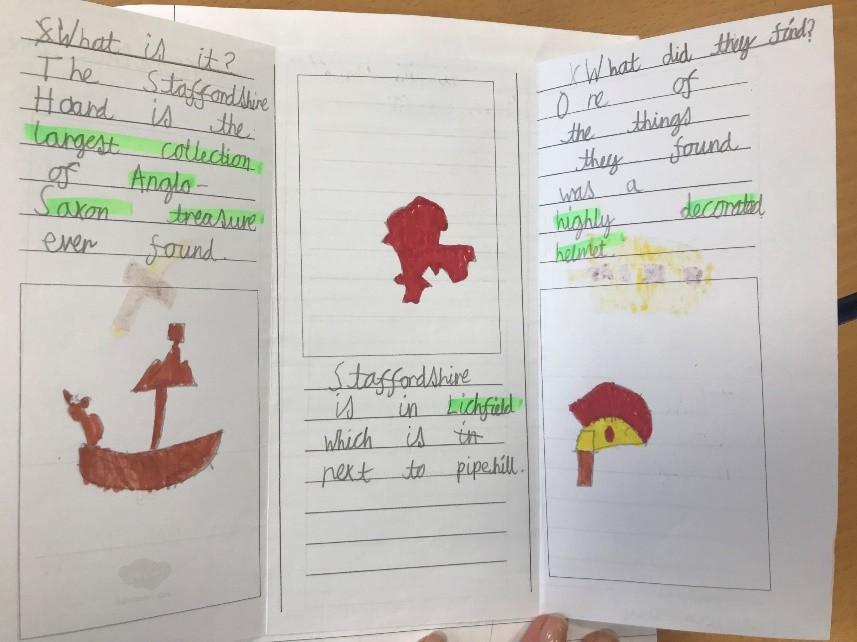 What is it?
The Staffordshire
Hoard is the
largest collection
of Anglo-
Saxon treasure
ever found.
Staffordshire
is in Lichfield
which is in
next to pipehill.
What did they find?
One of
the things
they found
was a
highly decorated
helmet.